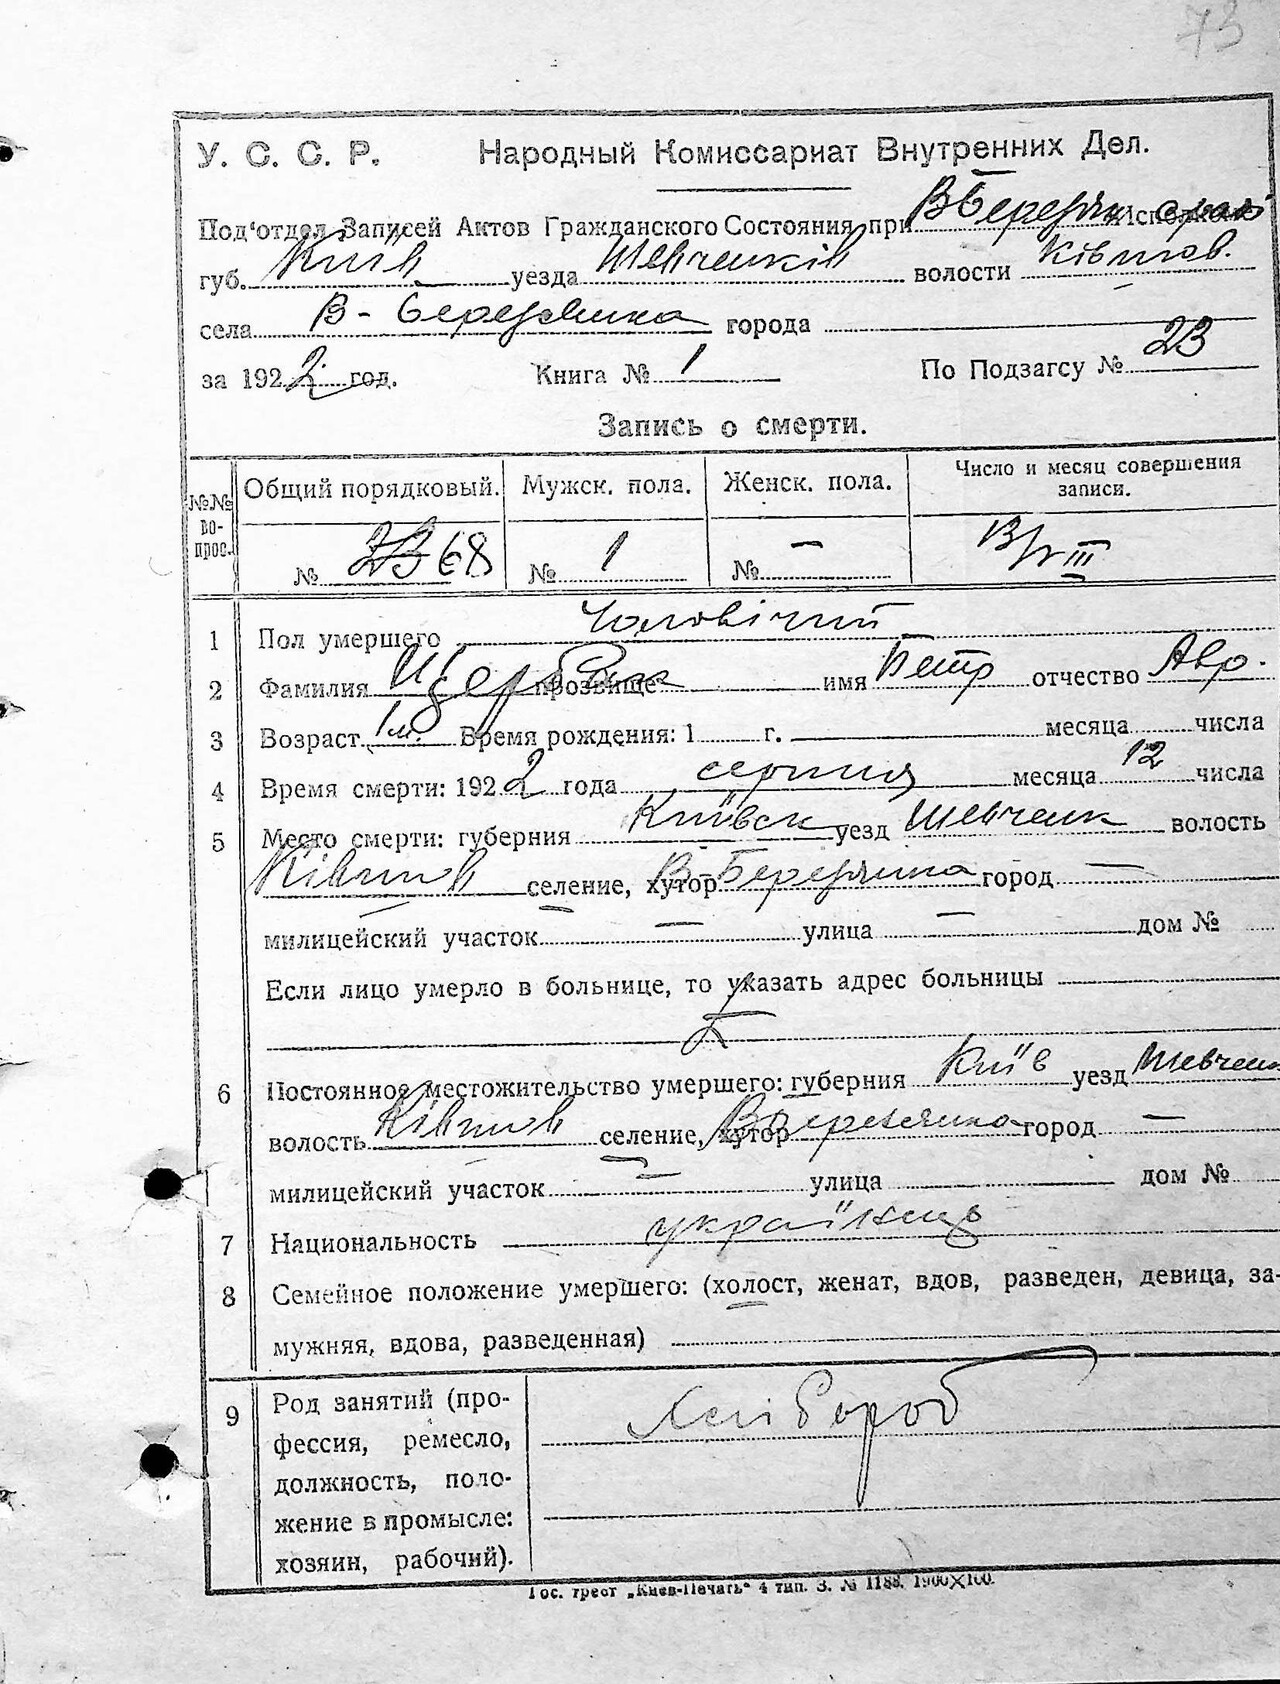 73
У. С. С. Р. Народный Комиссариат Внутренних Дел.
Под'отдел Записей Актов Гражданского Состояния при В Березян
губ. Київ уезда Шевченків волости Ківшов.
села В-Березянка города
за 1922 год. Книга № 1 По Подзагсу № 23
Запись о смерти.
№№ во-прос. Общий порядковый. Мужск. пола. Женск. пола. Число и месяц совершения записи.
№ 23 68 № 1 № — III
1 Пол умершего Чоловічий
2 Фамилия Щербак прозвище имя Петр отчество Авр.
3 Возраст 1 м. Время рождения: 1 г. месяца числа
4 Время смерти: 1922 года серпня месяца 12 числа
5 Место смерти: губерния Київск уезд Шевченк волость
Ківшов селение, хутор В-Березянка город —
милицейский участок — улица — дом №
Если лицо умерло в больнице, то указать адрес больницы
6 Постоянное местожительство умершего: губерния Київ уезд Шевченк
волость Ківшов селение, хутор В Березянка город —
милицейский участок — улица дом №
7 Национальность українець
8 Семейное положение умершего: (холост, женат, вдов, разведен, девица, за-
мужняя, вдова, разведенная)
9 Род занятий (про-
фессия, ремесло, Хлібороб
должность, поло-
жение в промысле:
хозяин, рабочий).
Гос. трест „Киев-Печать“ 4 тип. З. № 1188. 1900X100.